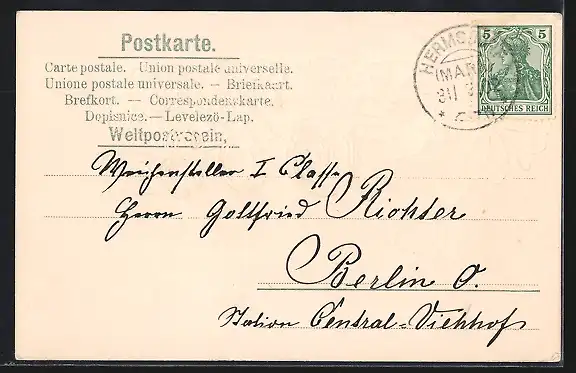 Postkarte.
Carte postale. Union postale universelle.
Unione postale universale. — Briefkaart.
Brefkort. — Correspondenzkarte.
Dopisnice. — Levelezö-Lap.
Weltpostverein,
HERMSD
(MAR
5 5
DEUTSCHES REICH
Weichensteller I Classe
Herrn Gottfried Richter
Berlin O.
Station Central-Viehhof